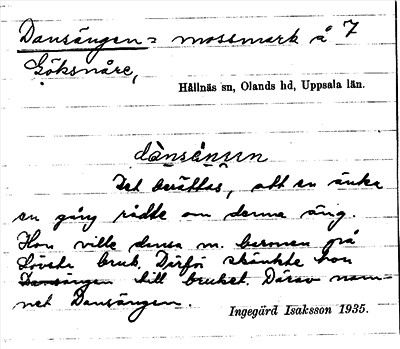 Dansängen = mossmark å 7
Göksnåre,
Hållnäs sn, Olands hd, Uppsala län.
dànséŋən
Det berättas, att en änka
en gång rådde om denna äng.
Hon ville dansa m. baronen på
Lövsta bruk. Därför skänkte hon
Dansängen till bruket. Därav nam-
net Dansängen.
Ingegärd Isaksson 1935.